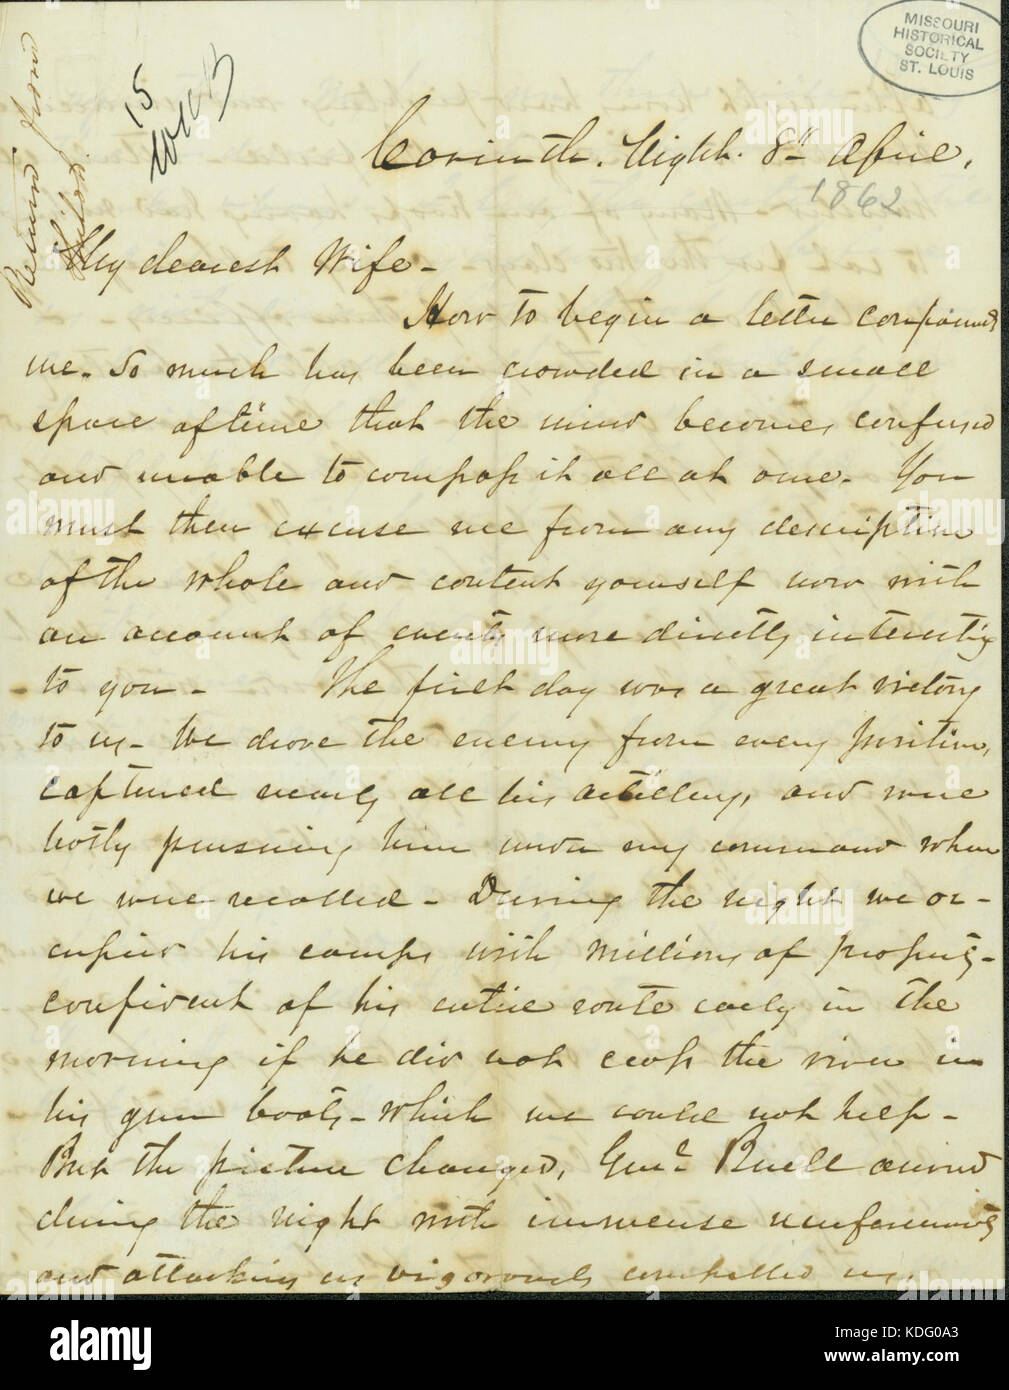 MISSOURI
HISTORICAL
SOCIETY
ST. LOUIS
Return from
Shiloh
15
Corinth. Night. 8th April,
1862
My dearest Wife -
How to begin a letter compounds
me. So much has been crowded in a small
space of time that the mind becomes confused
and unable to compass it all at once. You
must then excuse me from any description
of the whole and content yourself now with
an account of events more directly interestig
to you - The first day was a great victory
to us - We drove the enemy from every position,
captured nearly all his artillery, and were
hotly pursuing him under my command when
we were recalled - During the night we oc-
cupied his camps with millions of property -
confident of his entire route early in the
morning if he did not cross the river in
his gun boats - which we could not help -
But the picture changed, Genl Buell arrived
during the night with immense reinforcements
and attacking us vigorously compelled us,
alamy
Image ID: KDG0A3
www.alamy.com